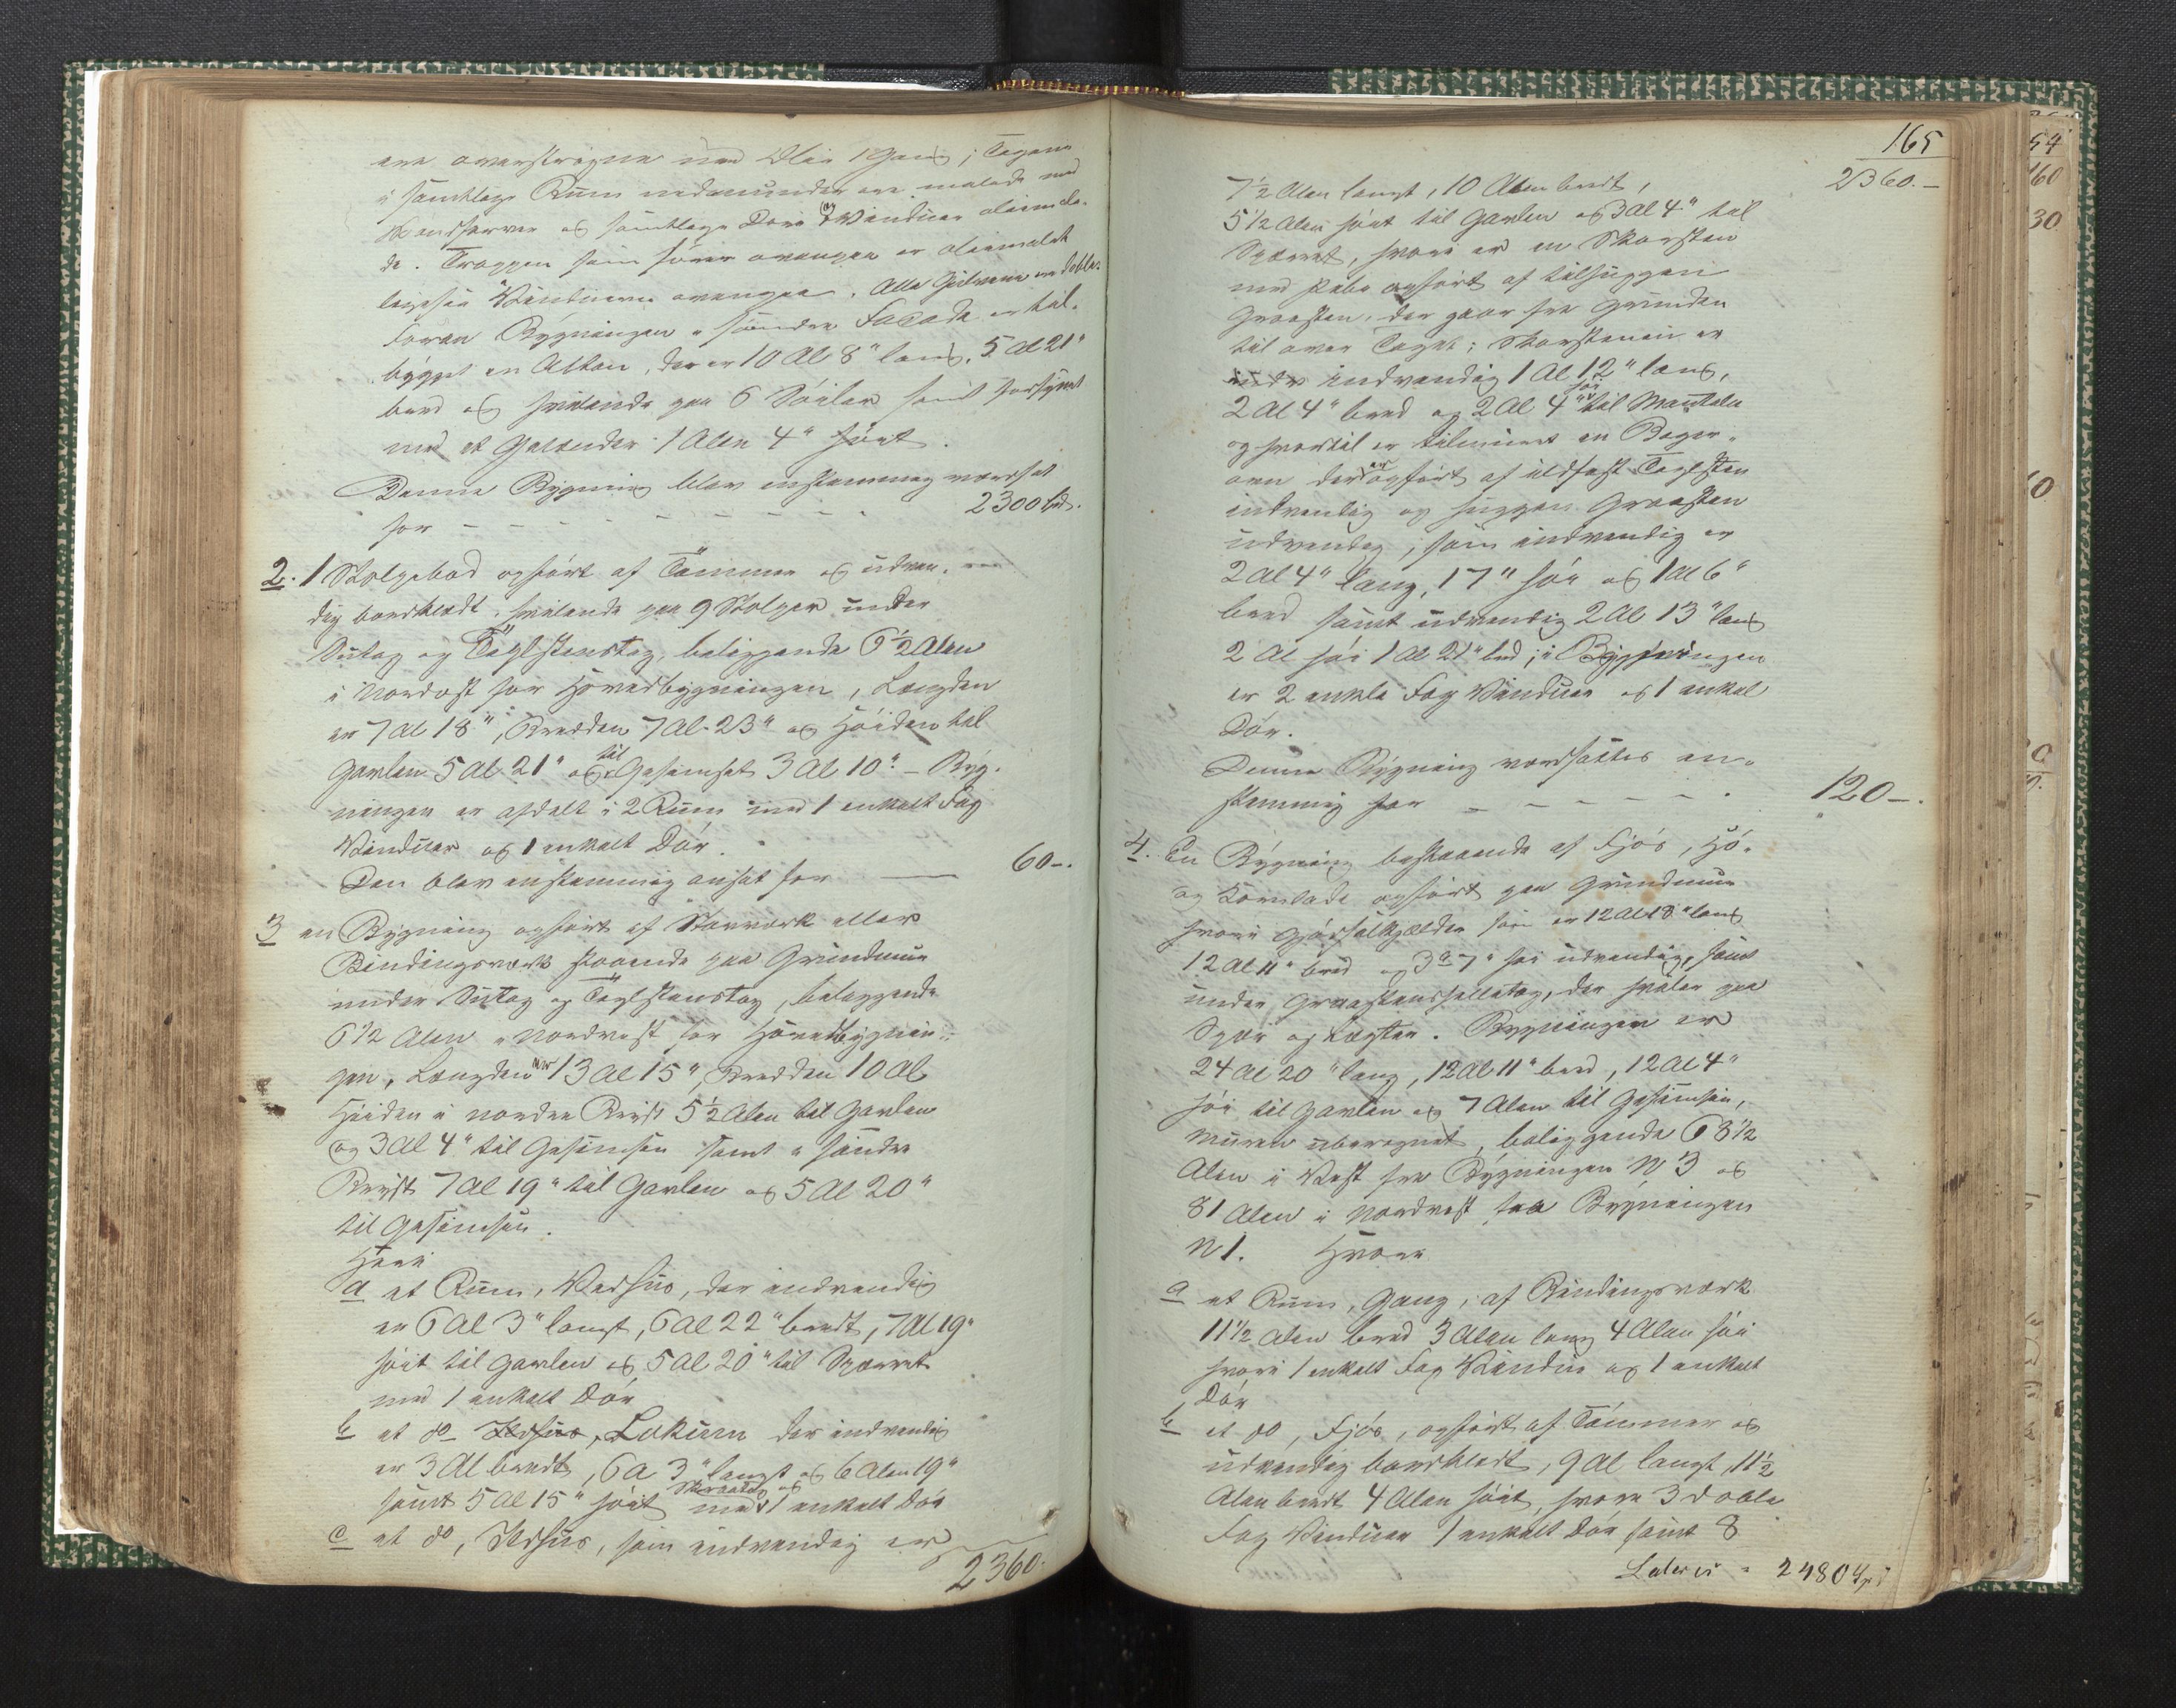 ere overstrøgne med Olie 1 Gang; Tagene
i samtlige Rum nedenunder ere malede med
Vandfarver og samtlige Døre og Vinduer oliemale-
de. Trappen som fører ovenpaa er oliemalet
ligesaa Vinduerne ovenpaa. Alle Gulvene ere doble.
Foran Bygningen i søndre Facade er til-
bygget en Altan, der er 10 Al 8" lang, 5 Al 21"
bred og hvilende paa 6 Søiler samt forsynet
med et Galender 1 Alen 4" høit.
Denne Bygning blev enstemmig værdsat
for — — — — — — — — 2300 Spd.
2. 1 Stolpebod opført af Tømmer og udven-
dig bordklædt, hvilende paa 9 Stolper under
Sutag og Taglstenstag, beliggende 6½ Alen
i Nordost for Hovedbygningen, Længden
er 7 Al 18", Bredden 7 Al 23" og Høiden til
Gavlen 5 Al 21" og til Gesimset 3 Al 10". – Byg-
ningen er afdelt i 2 Rum med 1 enkelt Fag
Vinduer og 1 enkelt Dør.
Den blev enstemmig ansat for — 60 –.
3 en Bygning opført af Stavværk eller
Bindingsværk staaende paa Grundmuur
under Sutag og Taglstenstag, beliggende
6½ Alen i Nordvest for Hovedbygnin-
gen, Længden er 13 Al 15", Bredden 10 Al
Høiden i nordre Bryst 5½ Alen til Gavlen
og 3 Al 4" til Gesimsen samt i søndre
Bryst 7 Al 19" til Gavlen og 5 Al 20"
til Gesimsen.
Heri
a et Rum, Vedhus, der indvendig
er 6 Al 3" langt, 6 Al 22" bredt, 7 Al 19"
høit til Gavlen og 5 Al 20" til Sperret
med 1 enkelt Dør
b et do Ildhus, Lokum der indvendig
er 3 Al bredt, 6 a 3" langt og 6 Alen 19"
samt 5 Al 15" høit Skraatag og med 1 enkelt Dør
c et do, Ildhus, som indvendig er
2360.
165
2360. –
7½ Alen langt, 10 Alen bredt,
5½ Alen høit til Gavlen og 3 Al 4" til
Sperret, hvori er en Skorsten
med Pibe opført af tilhuggen
Graasten, der gaar fra Grunden
til over Taget; Skorstenen er
indvendig 1 Al 12" lang,
2 Al 4" bred og 2 Al 4" høi til Mantelen
og hvortil er tilmuret en Bager-
ovn der er opført af ildfast Taglsten
indvendig og huggen Graasten
udvendig, som indvendig er
2 Al 4" lang, 17" høi og 1 Al 6"
bred samt udvendig 2 Al 13" lang
2 Al høi 1 Al 21" bred; i Bygningen
er 2 enkle Fag Vinduer og 1 enkel
Dør.
Denne Bygning værdsattes en-
stemmig for — — — — — 120 –.
4. En Bygning bestaaende af Fjøs, Hø-
og Kornlade opført paa Grundmuur
hvori Gjødselkjelder som er 12 Al 18" lang
12 Al 11" bred og 3 a 7" høi udvendig, samt
under Graastenshelletag, der hviler paa
Sper og Lægter. Bygningen er
24 Al 20" lang, 12 Al 11" bred, 12 Al 4"
høi til Gavlen og 7 Alen til Gesimsen,
Muren uberegnet, beliggende 68½
Alen i Vest fra Bygningen N 3 og
81 Alen i Nordvest fra Bygningen
N 1. Hvori
a et Rum, Gang, af Bindingsværk
11½ Alen bred 3 Alen lang 4 Alen høi
hvori 1 enkelt Fag Vindue og 1 enkelt
Dør
b et do, Fjøs, opført af Tømmer og
udvendig bordklædt, 9 Al langt, 11½
Alen bredt 4 Alen høit, hvori 3 doble
Fag Vinduer 1 enkelt Dør samt 8
Lateris = 2480 Spd